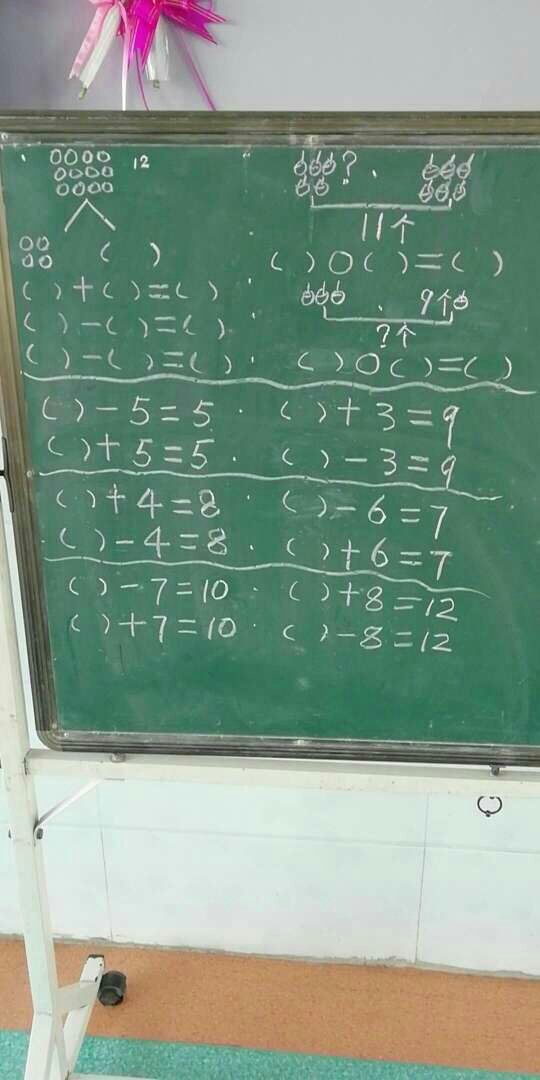 12
?
11个
( )
( ) ○ ( ) = ( )
( ) + ( ) = ( )
9个
( ) - ( ) = ( )
?个
( ) - ( ) = ( )
( ) ○ ( ) = ( )
( ) - 5 = 5 ( ) + 3 = 9
( ) + 5 = 5 ( ) - 3 = 9
( ) + 4 = 8 ( ) - 6 = 7
( ) - 4 = 8 ( ) + 6 = 7
( ) - 7 = 10 ( ) + 8 = 12
( ) + 7 = 10 ( ) - 8 = 12